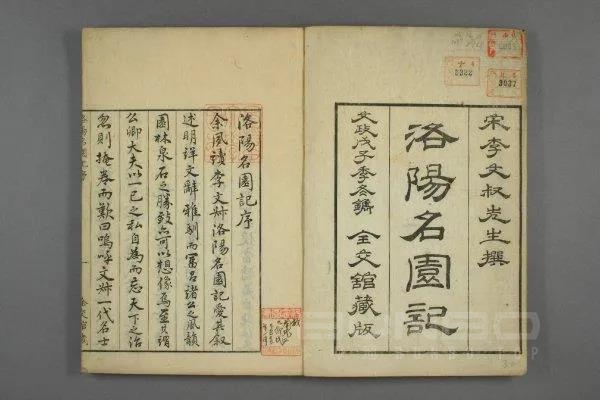 宋李文叔先生撰
洛陽名園記
文政戊子季冬鐫 全交館藏版
洛陽名園記序
余夙讀李文叔洛陽名園記愛其叙
述明詳文辭雅馴而冨呂諸公之風韻
園林泉石之勝致亦可以想像焉並其謂
公卿大夫以一己之私自為而忘天下之治
忽則掩卷而歎曰嗚呼文叔一代名士
3322
3037